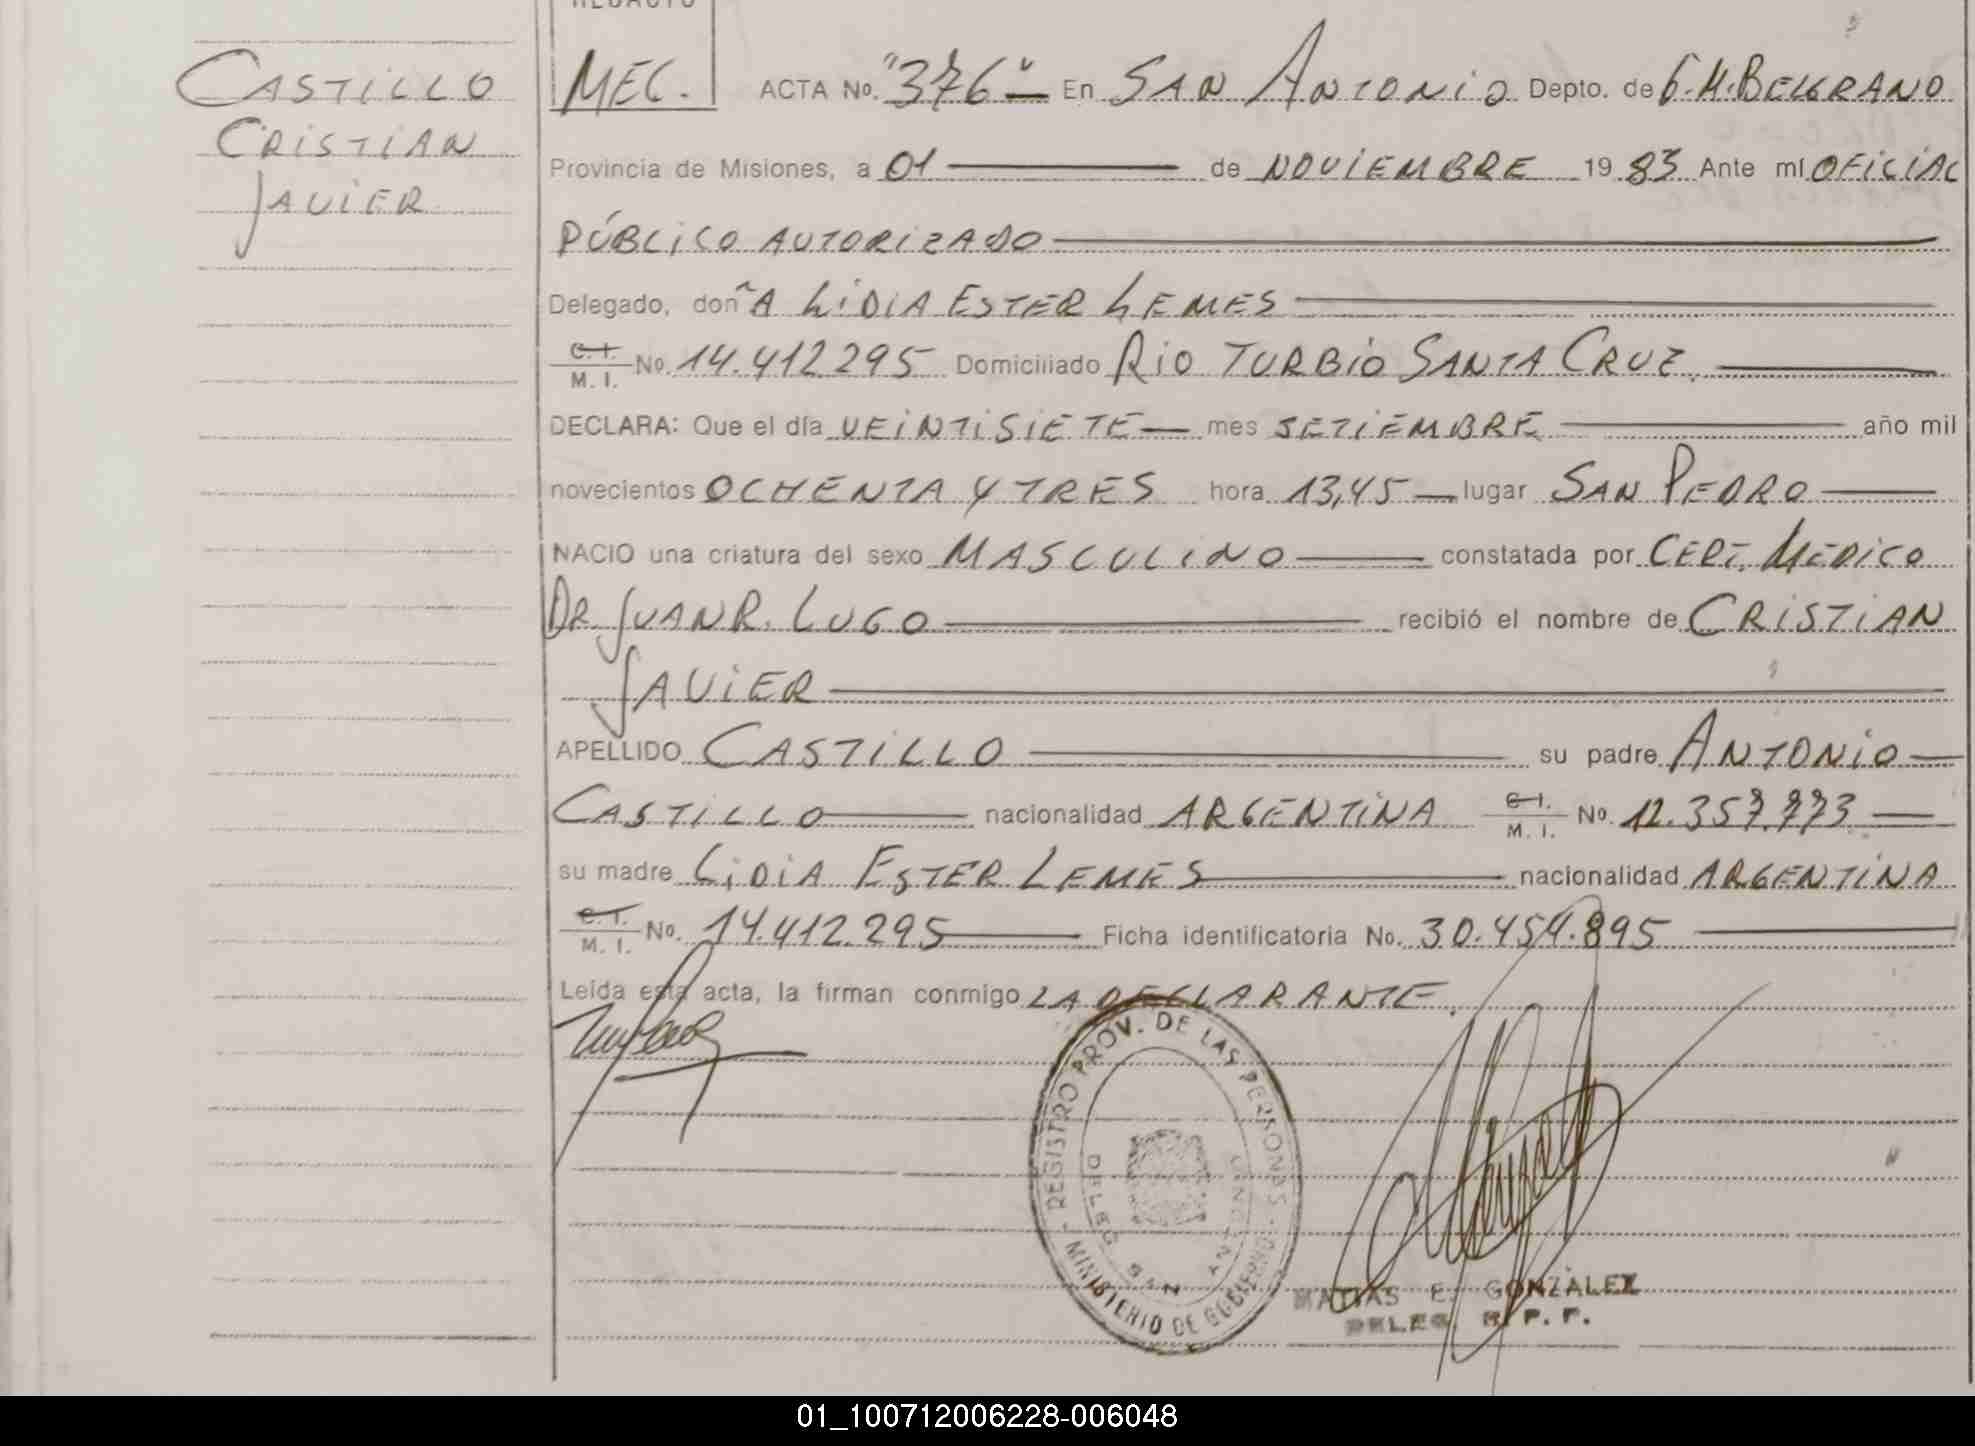 CASTILLO
CRISTIAN
JAVIER
REDACTO
MEC.
ACTA No. "376" En SAN ANTONIO Depto. de G.M.BELGRANO
Provincia de Misiones, a 01 de NOVIEMBRE 1983 Ante mí OFICIAL
PÚBLICO AUTORIZADO
Delegado, doñA LIDIA ESTER LEMES
C. I. M. I. No. 14.412.295 Domiciliado RIO TURBIO SANTA CRUZ.
DECLARA: Que el día VEINTISIETE mes SETIEMBRE año mil
novecientos OCHENTA Y TRES hora 13,45 lugar SAN PEDRO
NACIO una criatura del sexo MASCULINO constatada por CERT. MEDICO
DR JUAN R. LUGO recibió el nombre de CRISTIAN
JAVIER
APELLIDO CASTILLO su padre ANTONIO
CASTILLO nacionalidad ARGENTINA C. I. M. I. No. 12.357.773
su madre LIDIA ESTER LEMES nacionalidad ARGENTINA
C. I. M. I. No. 14.412.295 Ficha identificatoria No. 30.454.895
Leída esta acta, la firman conmigo LA DECLARANTE.
REGISTRO PROV. DE LAS PERSONAS
MINISTERIO DE GOBIERNO
DELEG. SAN ANTONIO
MATIAS E. GONZALEZ
DELEG. R. P. P.
01_100712006228-006048